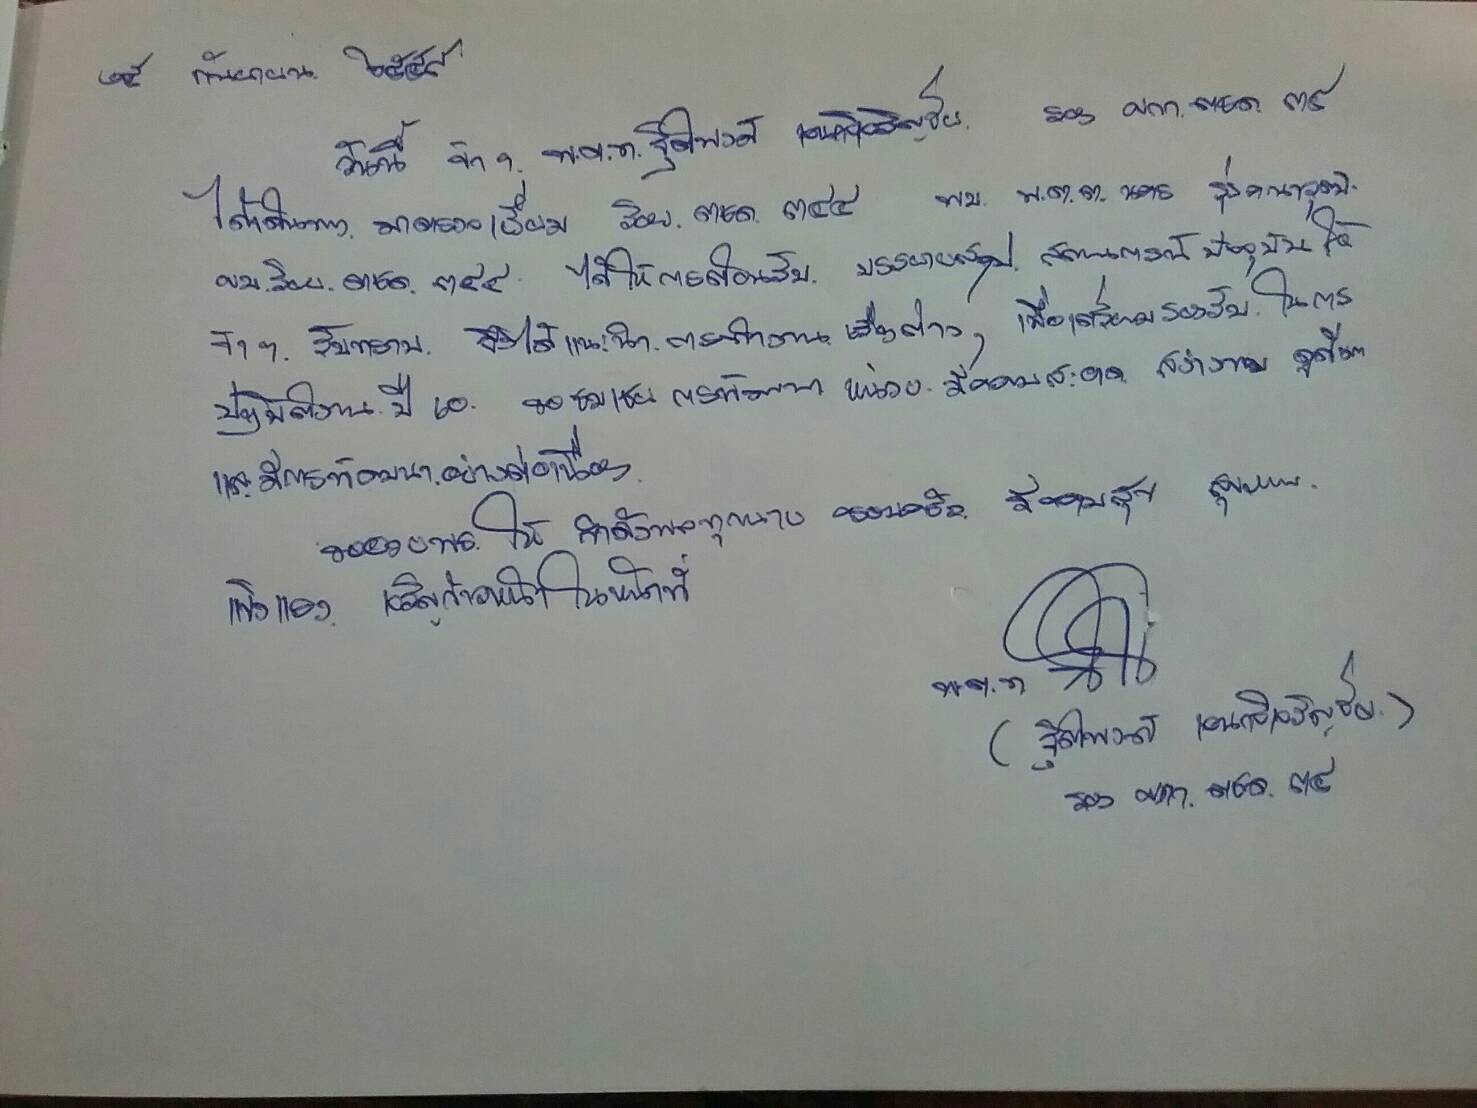 ๒๕ กันยายน ๒๕๕๙
วันนี้ ข้า ฯ. พ.ต.ท. ฐิติพงศ์ รอง ผกก. ตชด. ๓๔
ได้เดินทาง. มาตรวจเยี่ยม ร้อย. ตชด. ๓๔๔ พบ พ.ต.ต.
ผบ.ร้อย. ตชด. ๓๔๔. ได้ให้การต้อนรับ. บรรยายสรุป. สถานการณ์ ปัจจุบัน ให้
ข้า ฯ. รับทราบ. ได้ แนะนำ. การทำงาน. เรื่องต่าง ๆ เพื่อเตรียม รองรับ. ในการ
ปฏิบัติงาน ปี ๖๐. ขอ ชมเชย การพัฒนา หน่วย. มีความสะอาด สวยงาม
และ มีการพัฒนา. อย่างต่อเนื่อง.
ขออวยพร ให้ กำลังพลทุกนาย ครอบครัว มีความสุข สุขภาพ.
แข็งแรง. เจริญก้าวหน้า ในหน้าที่
พ.ต.ท
( ฐิติพงศ์ )
รอง ผกก. ตชด. ๓๔